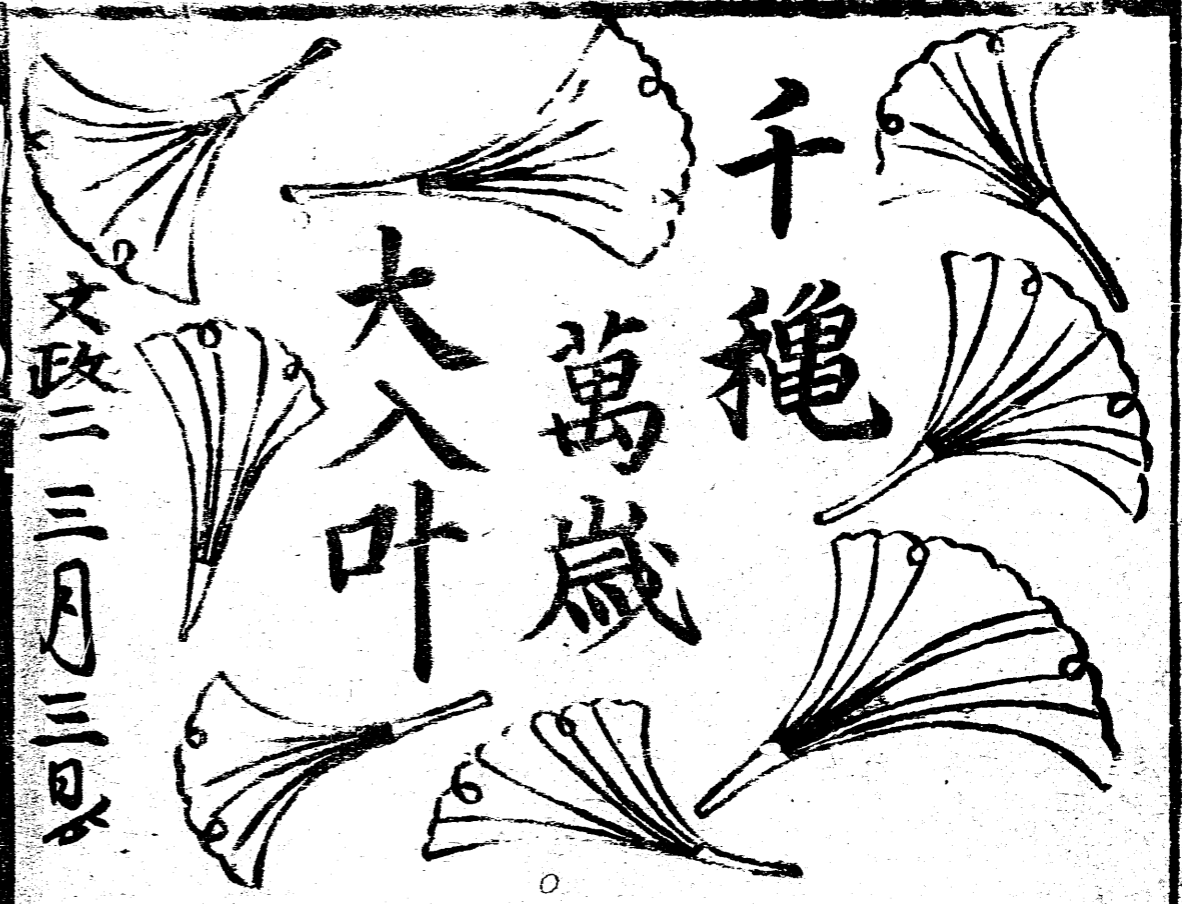 千穐
萬歳
大入叶
文政二三月三日